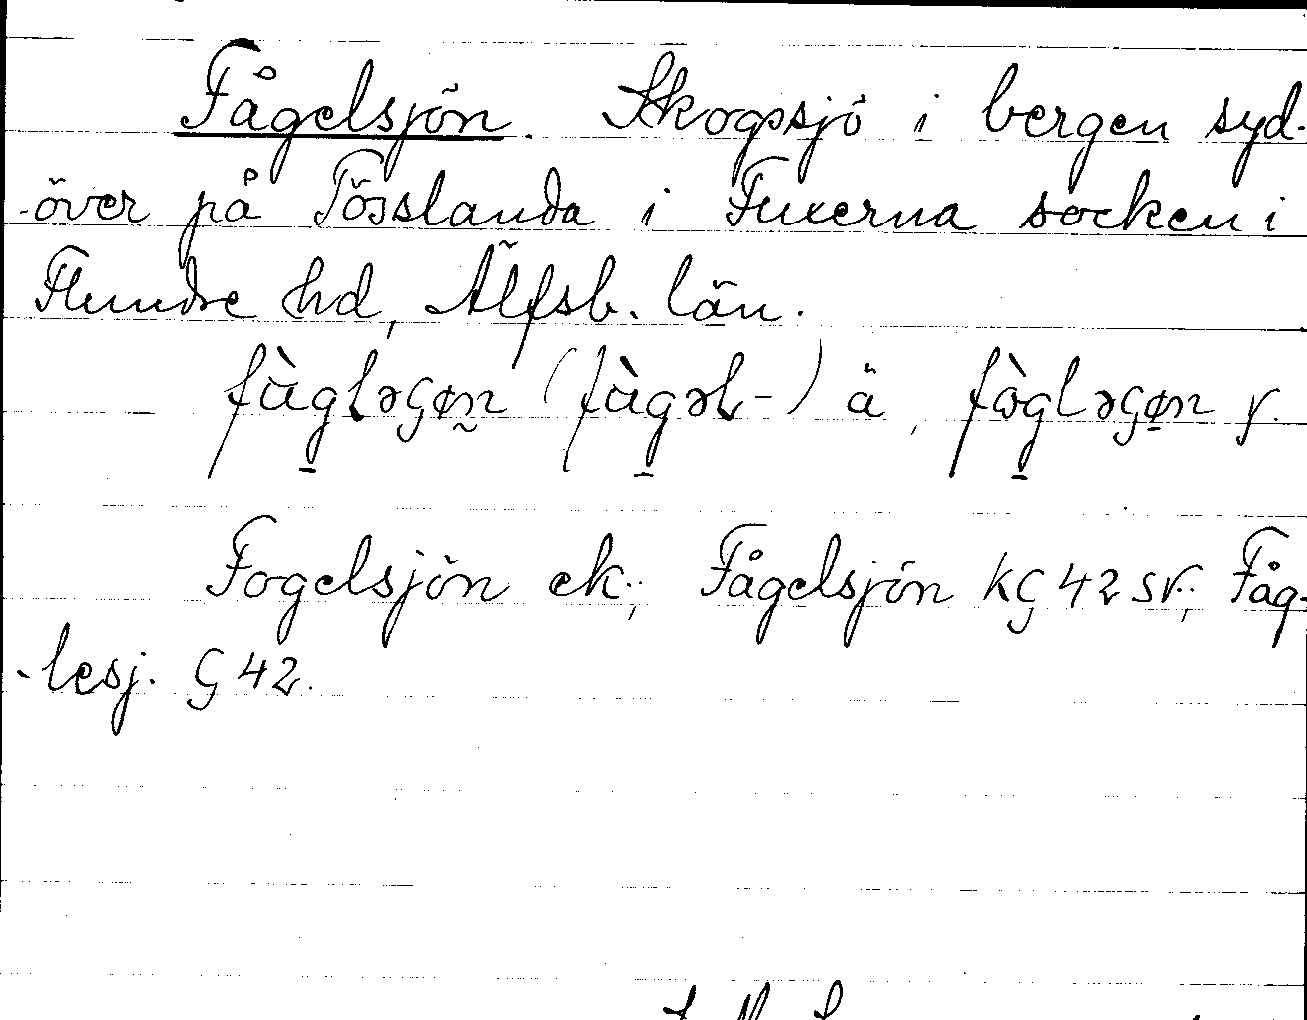 Fågelsjön. Skogssjö i bergen syd-
-över på Tösslanda i Fuxerna socken i
Flundre hd, Älfsb. län.
fùgləʂøn (fùgəl-) ä, fògləʂøn y.
Fogelsjön ek.; Fågelsjön KG 42 SV.; Fåg-
-lesj. G 42.